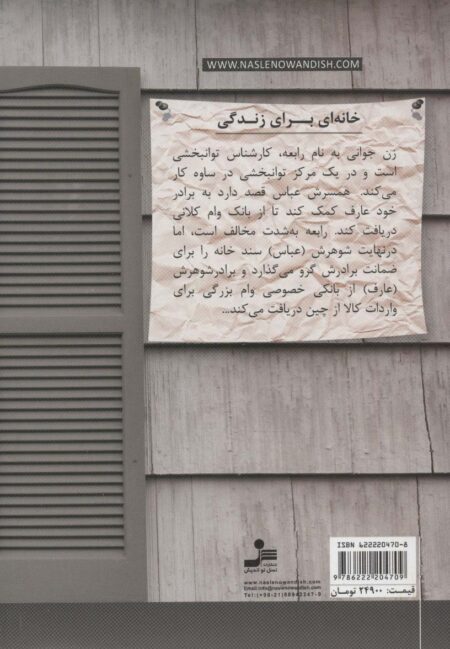 WWW.NASLENOWANDISH.COM
خانه‌ای برای زندگی
زن جوانی به نام رابعه، کارشناس توانبخشی
است و در یک مرکز توانبخشی در ساوه کار
می‌کند. همسرش عباس قصد دارد به برادر
خود عارف کمک کند تا از بانک وام کلانی
دریافت کند. رابعه به‌شدت مخالف است، اما
درنهایت شوهرش (عباس) سند خانه را برای
ضمانت برادرش گرو می‌گذارد و برادرشوهرش
(عارف) از بانکی خصوصی وام بزرگی برای
واردات کالا از چین دریافت می‌کند...
ISBN 622220470-8
9 786222 204709
قیمت: ۲۴۹۰۰ تومان
انتشارات
نسل نو اندیش
www.naslenowandish.com
Email:info@naslenowandish.com
Tel:(+98-21)88942247-9